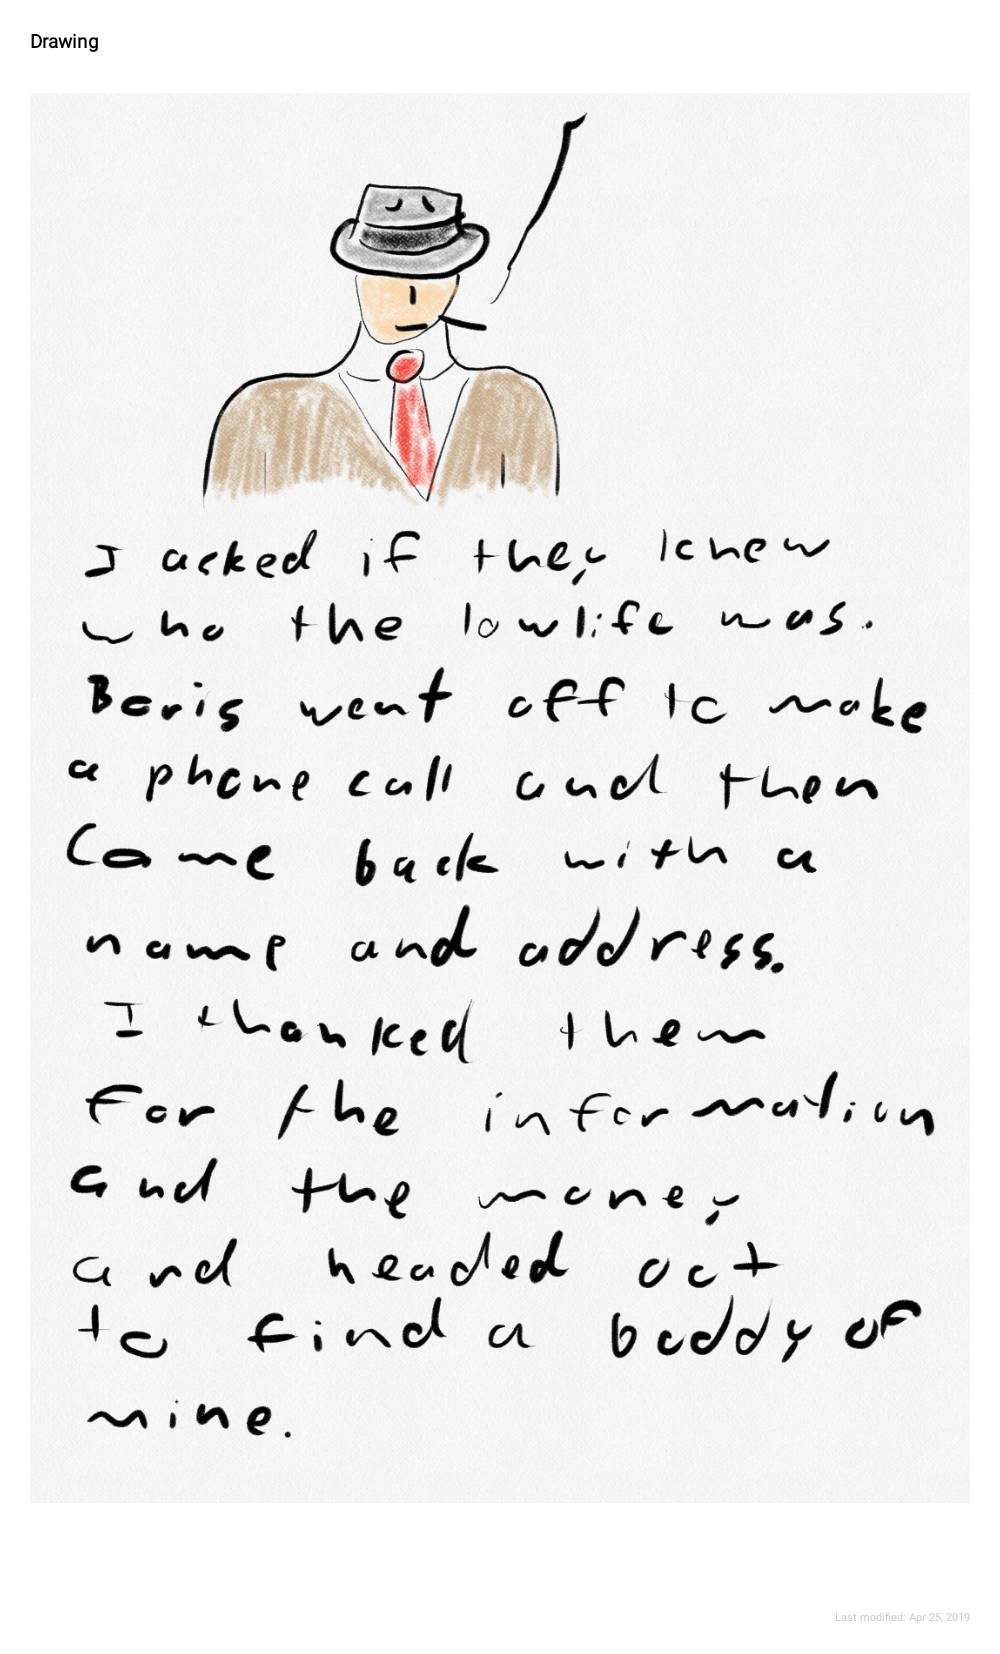 Drawing
I asked if they knew
who the lowlife was.
Boris went off to make
a phone call and then
Came back with a
name and address.
I thanked them
for the information
and the money
and headed out
to find a buddy of
mine.
Last modified: Apr 25, 2019